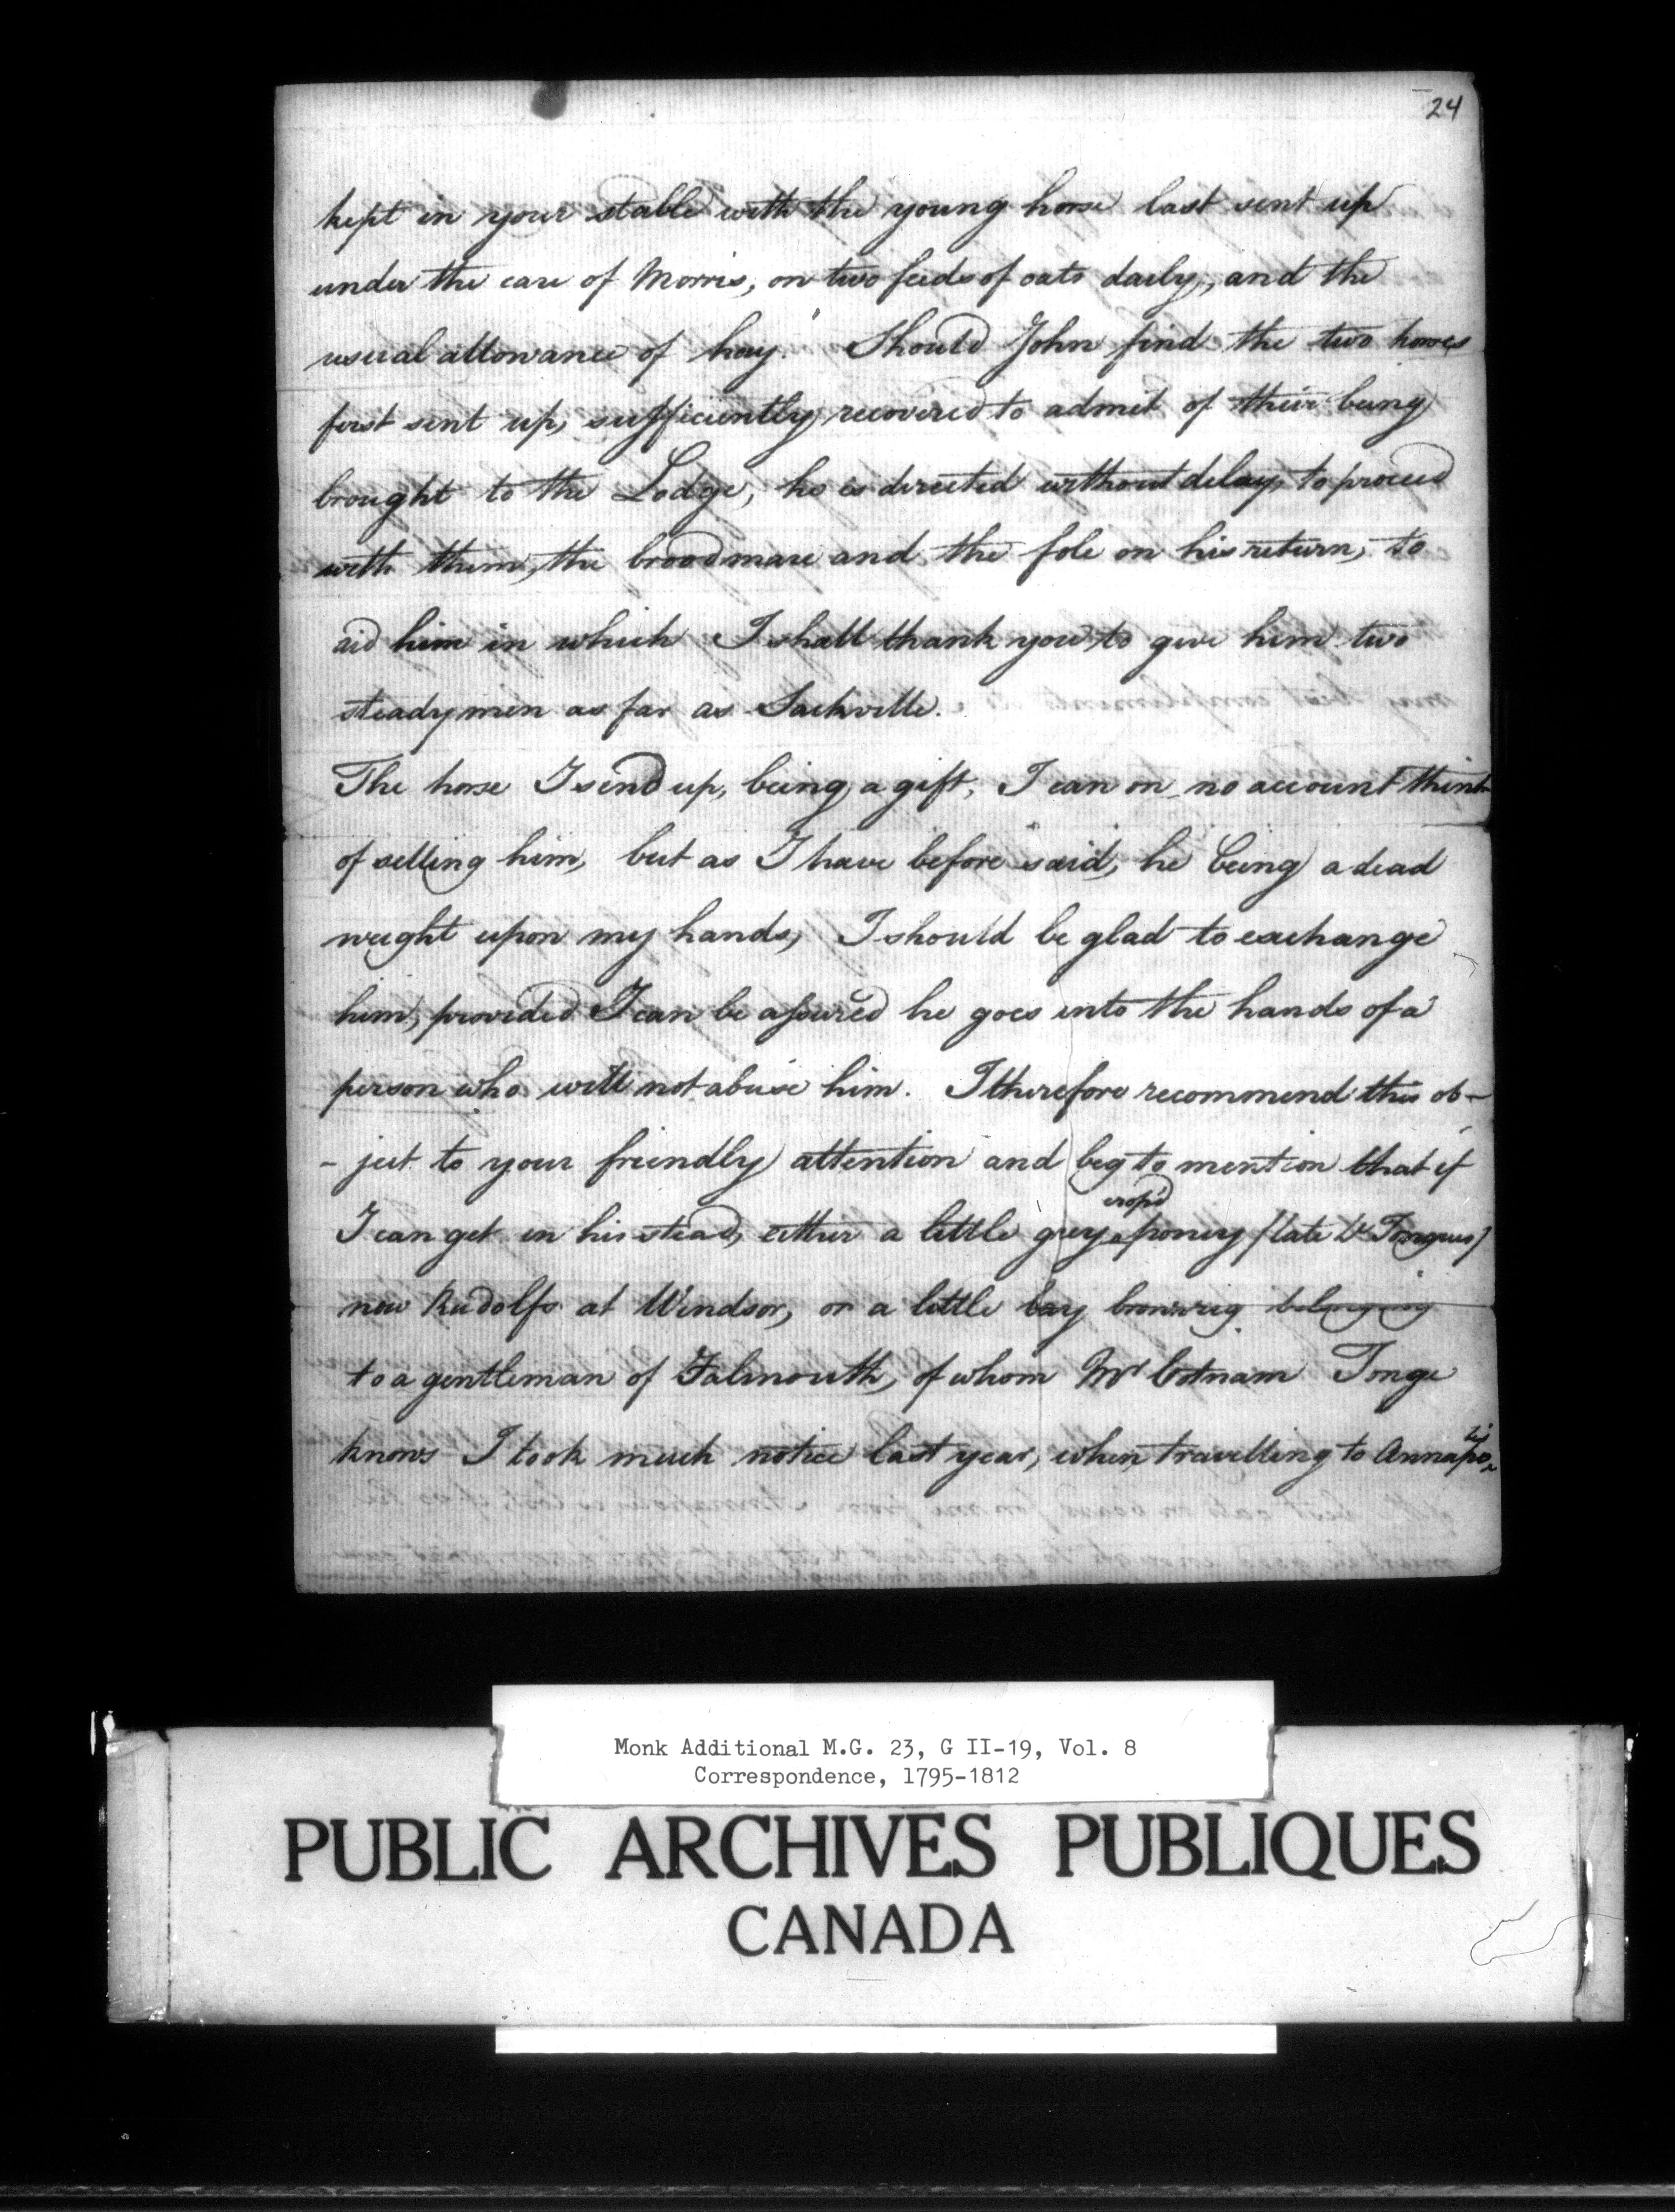 24
kept in your stable with the young horse last sent up
under the care of Morris, on two feeds of oats daily, and the
usual allowance of hay." Should John find the two horses
first sent up, sufficiently recovered to admit of their being
brought to the Lodge, he is directed without delay, to proceed
with them, the broodmare and the fole on his return, to
aid him in which I shall thank you to give him two
steady men as far as Sackville.
The horse I send up, being a gift, I can on no account think
of selling him, but as I have before said, he being a dead
weight upon my hands, I should be glad to exchange
him, provided I can be assured he goes into the hands of a
person who will not abuse him. I therefore recommend this ob-
- ject to your friendly attention and beg to mention that if
crop'd
I can get in his stead, either a little grey poney /late Dr Tongues/
now Rudolfs at Windsor, or a little bay belonging
to a gentleman of Falmouth, of whom Mr Cotnam Tonge
knows I took much notice last year, when travelling to Annapo
lis
Monk Additional M.G. 23, G II-19, Vol. 8
Correspondence, 1795-1812
PUBLIC ARCHIVES PUBLIQUES
CANADA